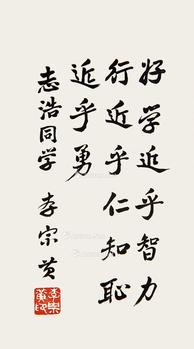 好学近乎智力
行近乎仁知恥
近乎勇
志浩同学 李宗黄